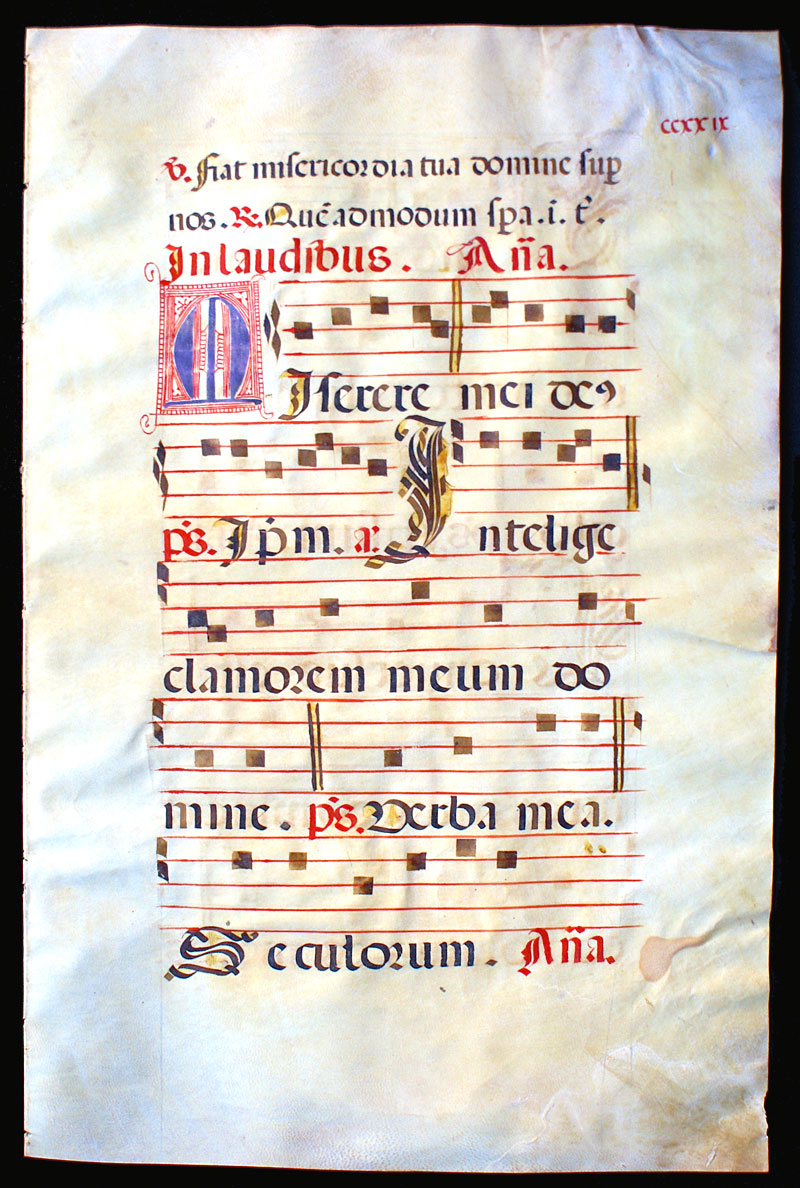 ccxxix
v. fiat misericordia tua domine sup
nos. R. Quēadmodum spa. i. t̄.
In laudibus. Aña.
Miserere mei deꝰ
p̄s. Ip̄m. a. Intelige
clamorem meum do
mine. p̄s. Verba mea.
Seculorum. Aña.